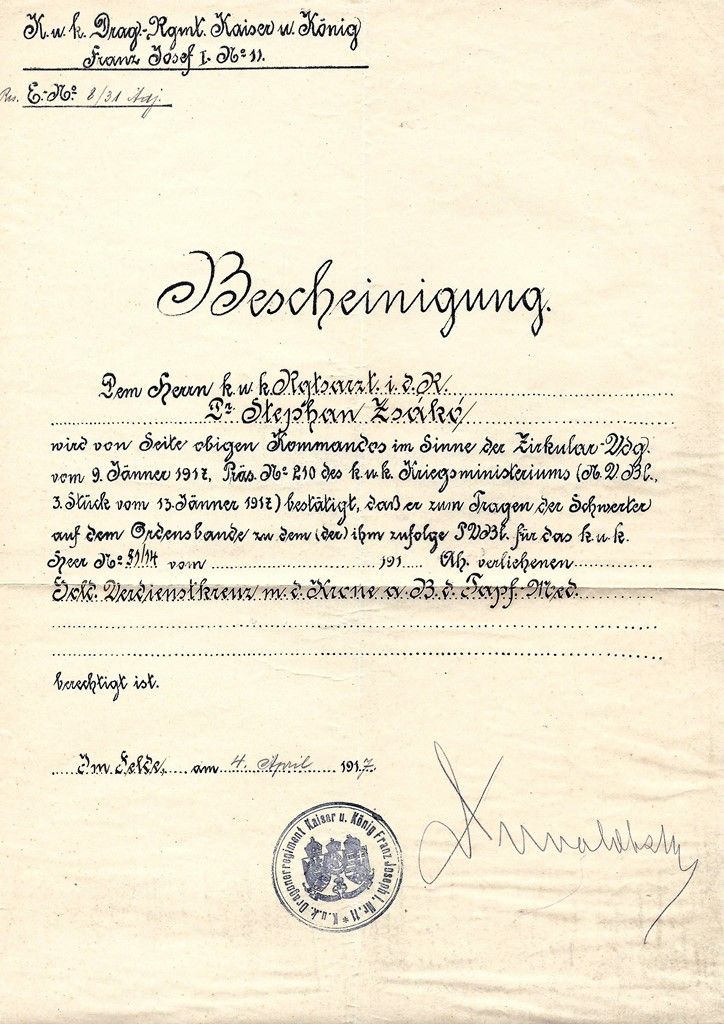 K. u. k. Drag.-Rgmt. Kaiser u. König
Franz Josef I. Nº 11.
Res. E.-Nº 8/31 Adj.
Bescheinigung.
Dem Herrn k. u. k. Rgtsarzt. i. d. R.
Dr Stephan Zsákó
wird von Seite obigen Kommandos im Sinne der Zirkular-Vdg.
vom 9. Jänner 1917, Präs. Nº 210 des k. u. k. Kriegsministeriums (N. V. Bl.,
3. Stück vom 13. Jänner 1917) bestätigt, daß er zum Tragen der Schwerter
auf dem Ordensbande zu dem (der) ihm zufolge P.V.Bl. für das k. u. k.
Heer Nº 81/14 vom 191 Ah. verliehenen
Gold. Verdienstkreuz m. d. Krone a. B. d. Tapf.-Med.
berechtigt ist.
Im Felde, am 4. April 1917.
K.u.k. Dragonerregiment Kaiser u. König Franz Joseph I. Nr. 11 *